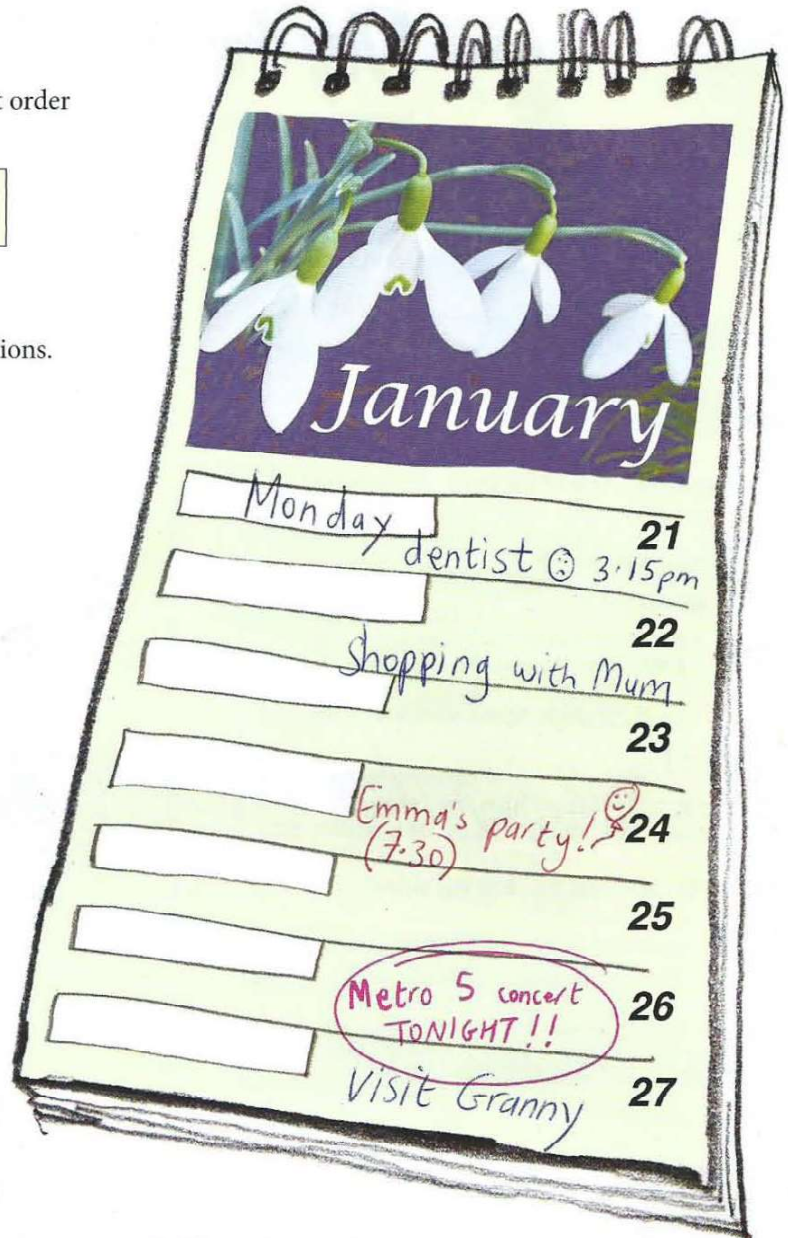 t order
ions.
January
Monday
21
dentist 3.15pm
22
Shopping with Mum
23
Emma's party!
24
(7.30)
25
Metro 5 concert
26
TONIGHT!!
Visit Granny
27